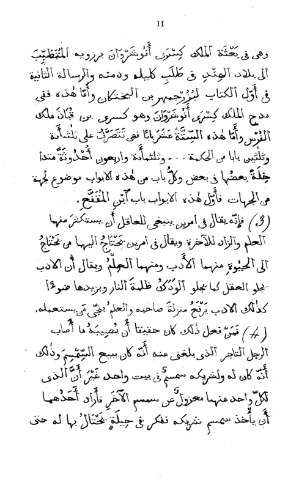 11
وهى فى بعثة الملك كِسْرَى أَنُوشَرْوَان برزويه المُتَطَبِّب
الى بلاد الهِنْدِ فى طلَبِ كليله ودمنه والرسالة الثانية
فى أوّل الكتاب لبُزُرجمهر بن البختكان وأمّا هذه ففى
مدح الملك كسرى أَنُوشَرْوَان وهو كسرى بن قُباذ ملك
الفُرْس وأمّا هٰذه السِّتَّةَ عَشَرَ بابًا فهى تنصرف على ثلثمائة
وثلثين بابا من الحكمة ... وثلثمائة واربعون أُحْدُوثَة
بعضها فى بعض وكلّ باب من هذه الابواب موضوع لجهة
من الجهات فأوّل هذه الابواب باب آبْنِ المُقَفَّعِ.
(3) فإنّه يقال فى امرين ينبغى للعاقل أن يستكثر منهما
العلم والزاد للآخرة ويقال فى امرين يحتاج اليهما من يَحْتَاجُ
الى الحيوة منهما الأدب ومنهما العِلْمُ ويقال أن الادب
يجلو العقل كما يجلو الوَدَكُ ظلمة النار ويزيدها ضوءًا
كذلك الادب يَرْفَعُ منزلة صاحبه والعلم يُنجّى من يستعمله.
(4) فمَنْ فعل ذلك كان حقيقا أن تُصِيبَهُ ما أصاب
الرجل التاجر الذى بلغنى منه أنّه كان يبيع السِّمْسِم وذلك
أنّه كان له ولشريكه سمسم فى بيت واحد غَيْرَ أنّ الذى
لكلّ واحد منهما معزول من سمسم الآخَر فأراد أحدهما
أن يأخذ سمسم شريكه ففكر فى حِيلَةٍ يَحْتَالُ بها له حتى